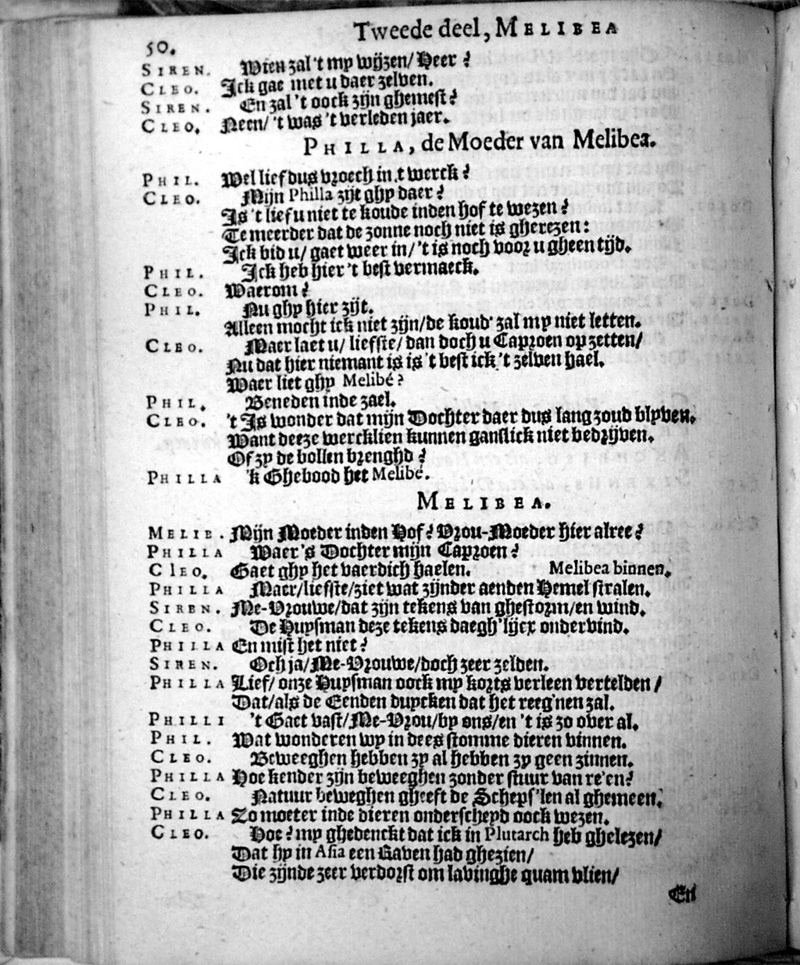 Tweede deel, MELIBEA
50.
SIREN. Wien zal 't my wijzen/ Heer?
CLEO. Ick gae met u daer zelven.
SIREN. En zal 't oock zijn ghemest?
CLEO. Neen/ 't was 't verleden jaer.
PHILLA, de Moeder van Melibea.
PHIL. Wel lief dus vroech in 't werck?
CLEO. Mijn Philla zijt ghy daer?
Is 't lief u niet te koude inden hof te wezen?
Te meerder dat de zonne noch niet is gherezen:
Ick bid u/ gaet weer in/ 't is noch voor u gheen tijd.
PHIL. Ick heb hier 't best vermaeck.
CLEO. Waerom?
PHIL. Nu ghy hier zijt.
Alleen mocht ick niet zijn/de koud' zal my niet letten.
CLEO. Maer laet u/ liefste/ dan doch u Caproen op zetten/
Nu dat hier niemant is is 't best ick 't zelven hael.
Waer liet ghy Melibé?
PHIL. Beneden inde zael.
CLEO. 't Is wonder dat mijn Dochter daer dus lang zoud blyven.
Want deeze wercklien kunnen ganslick niet bedrijven.
Of zy de bollen brenghd?
PHILLA 'k Ghebood het Melibé.
MELIBEA.
MELIE. Mijn Moeder inden Hof? Vrou-Moeder hier alree?
PHILLA Waer 's Dochter mijn Caproen?
Cleo. Gaet ghy het vaerdich haelen. Melibea binnen.
PHILLA Maer/liefste/ziet wat zijnder aenden Hemel stralen.
SIREN. Me-Vrouwe/dat zijn tekens van ghestorm/en wind.
CLEO. De Huysman deze tekens daegh'lijcx ondervind.
PHILLA En mist het niet?
SIREN. Och ja/Me-Vrouwe/doch zeer zelden.
PHILLA Lief/ onze Huysman oock my korts verleen vertelden/
Dat/als de Eenden duycken dat het reeg'nen zal.
PHILLI 't Gaet vast/Me-Vrou/by ons/en 't is zo over al.
PHIL. Wat wonderen wy in dees stomme dieren vinnen.
CLEO. Beweeghen hebben zy al hebben zy geen zinnen.
PHILLA Hoe kender zijn beweeghen zonder stuur van re'en?
CLEO. Natuur beweghen gheeft de Scheps'len al ghemeen.
PHILLA Zo moeter inde dieren onderscheyd oock wezen.
CLEO. Hoe? my ghedenckt dat ick in Plutarch heb ghelezen/
Dat hy in Asia een Raven had ghezien/
Die zijnde zeer verdorst om lavinghe quam vlien/
En